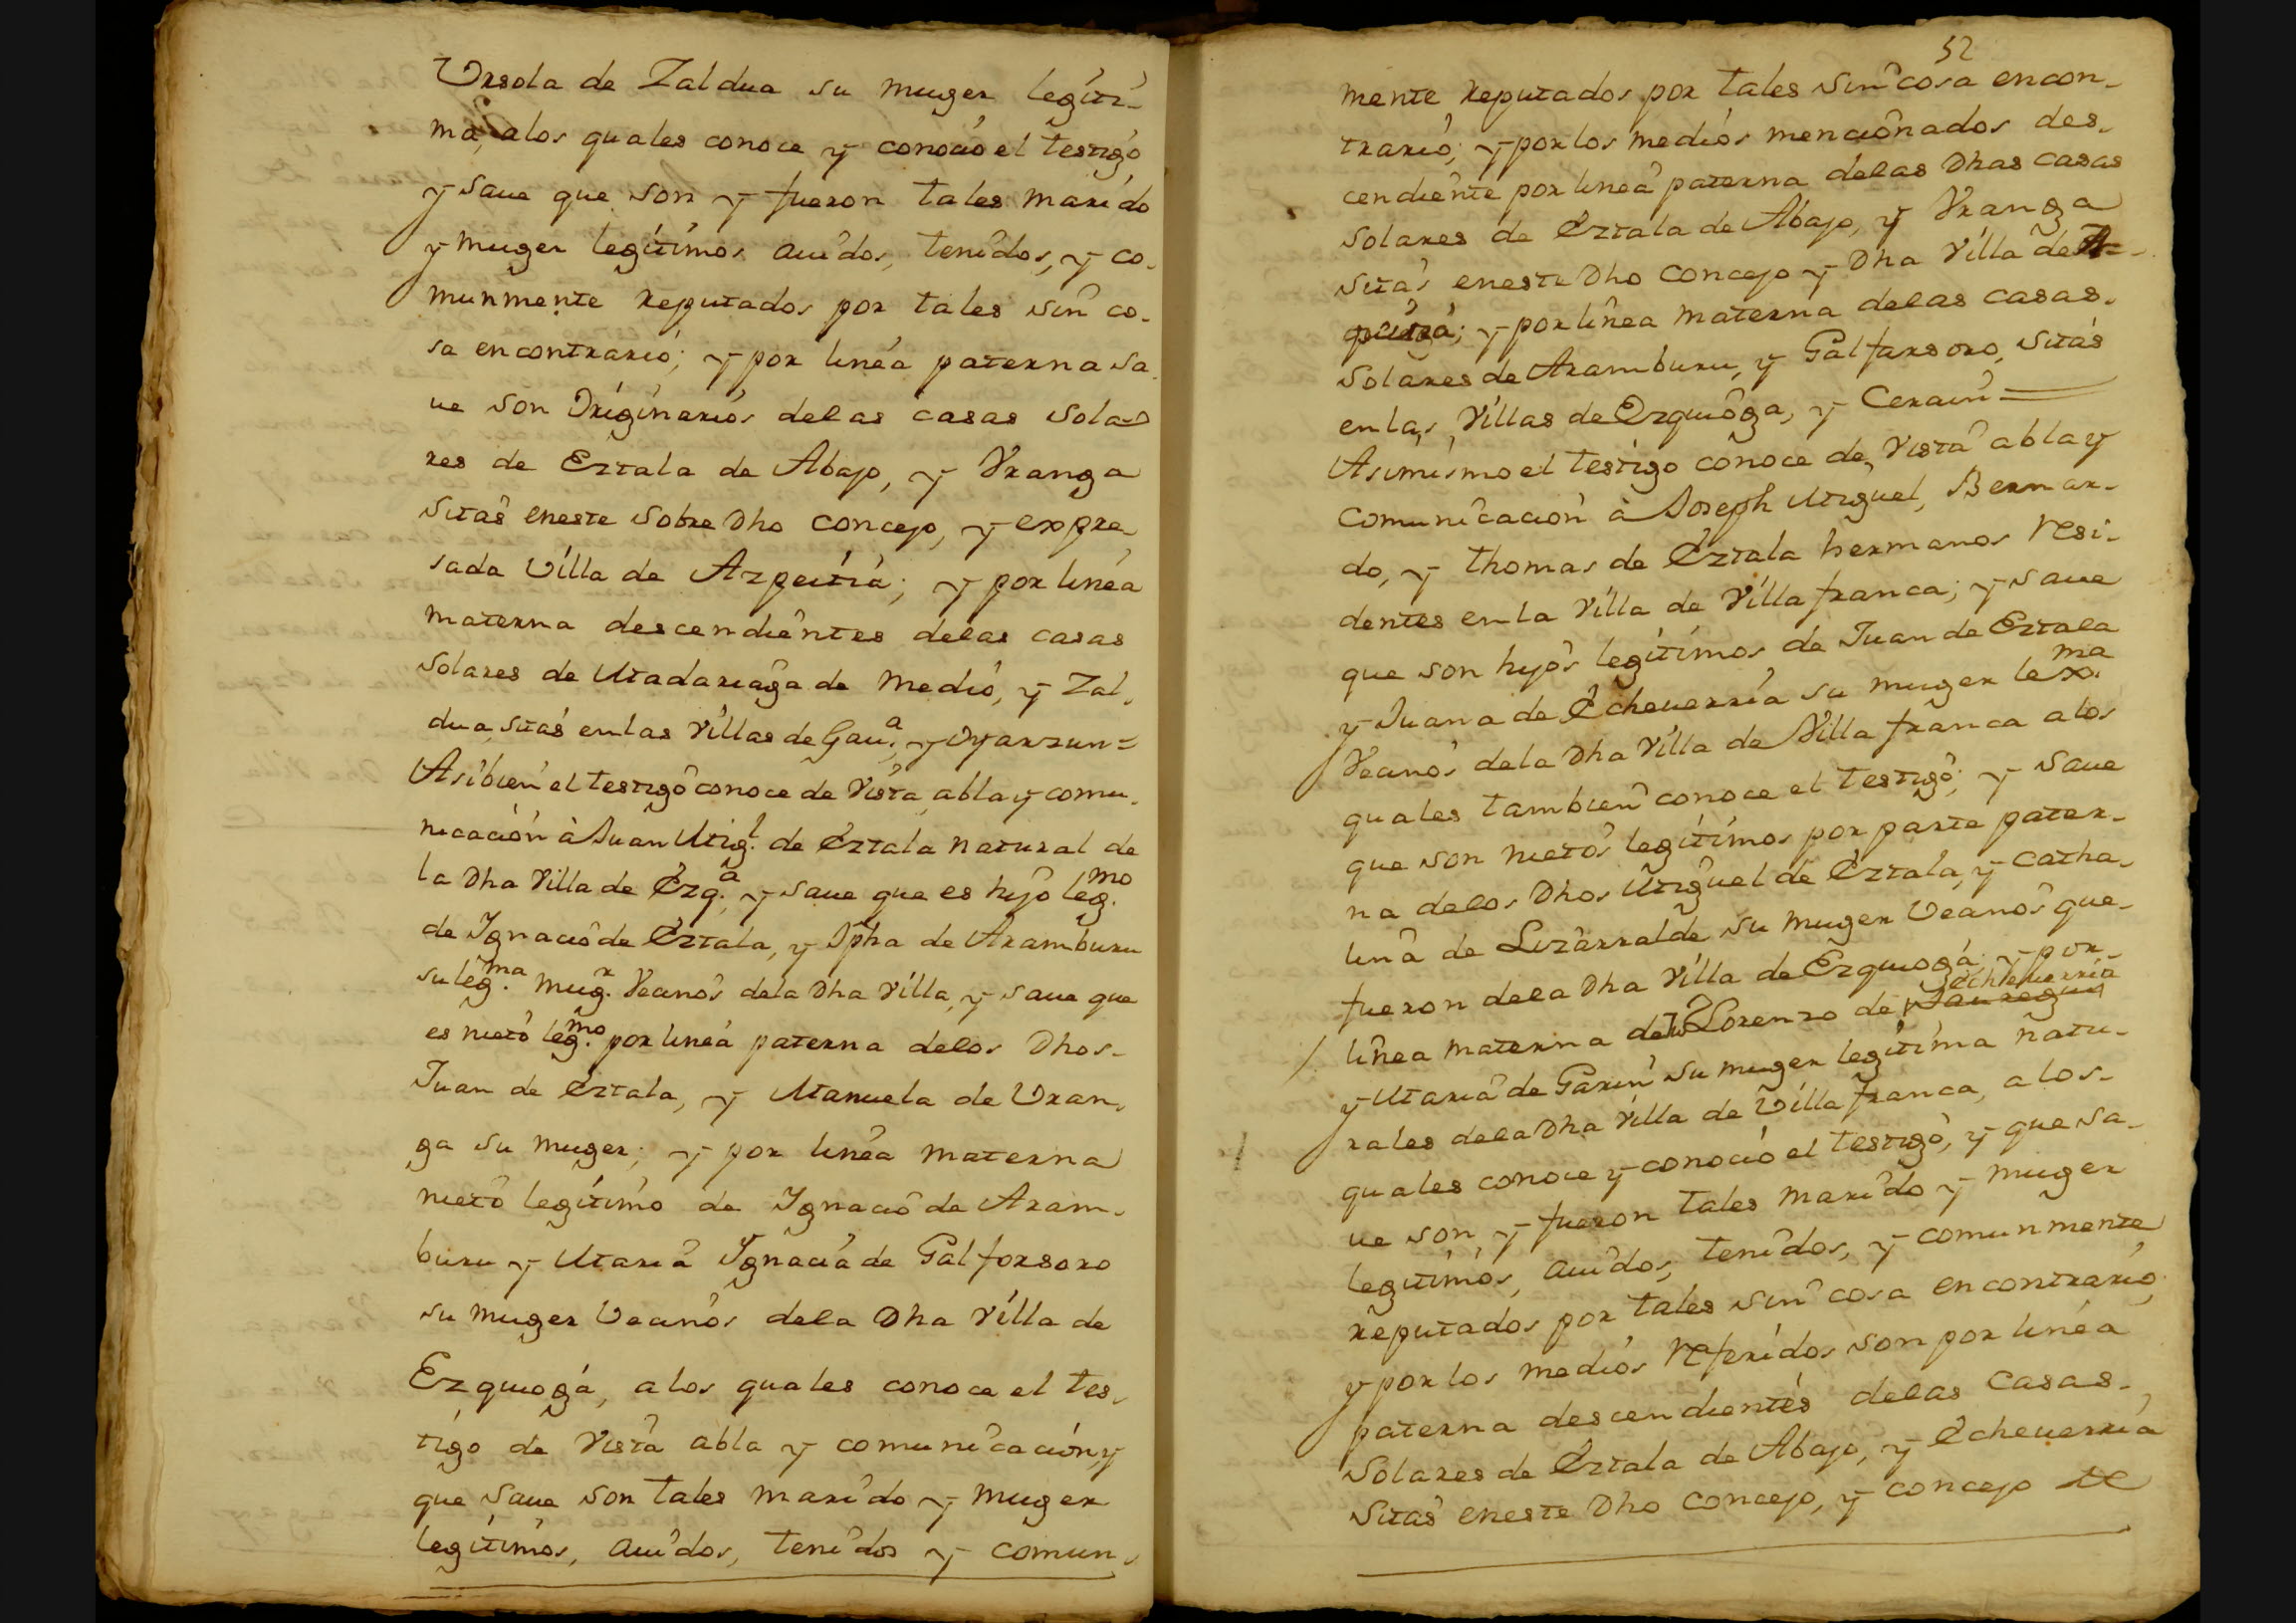 Vrsola de Zaldua su muger legiti-
ma, alos quales conoce y conoció el testigo
y saue que son y fueron tales marido
y muger legitimos auidos, tenidos, y co-
munmente reputados por tales sin co-
sa encontrario; y por linea paterna sa-
ue son Originarios delas casas sola-
res de Eztala de Abajo, y Vranga
sitas eneste sobre dho concejo, y expre-
sada Villa de Azpeitia; y por linea
materna descendientes delas casas
solares de Madariaga de medio, y Zal-
dua, sitas enlas Villas de Gau.ª, y Oyarzun=
Asibien el testigo conoce de Vista, abla y comu-
nicación à Juan Mig.l de Eztala natural de
la Dha Villa de Ezq.ª, y saue que es hijo leg.mo
de Ignacio de Eztala, y Jpha de Aramburu
su leg.ma mug.r Vecinos dela Dha Villa, y saue que
es nieto leg.mo por linea paterna delos Dhos-
Juan de Eztala, y Manuela de Vran-
ga su muger; y por linea materna
nieto legitimo de Ignacio de Aram-
buru y Maria Ignacia de Galforsoro
su muger Vecinos dela Dha Villa de
Ezquioga, alos quales conoce el tes-
tigo de Vista abla y comunicación, y
que saue son tales marido y muger
legitimos, auidos, tenidos y comun-
52
mente reputados por tales sin cosa encon-
trario; y por los medios mencionados des-
cendiente por linea paterna delas Dhas casas
solares de Eztala de Abajo, y Vranga
sitas eneste Dho concejo y Dha Villa de A=
peitia; y por linea materna delas casas-
solares de Aramburu, y Galfarsoro, sitas
enlas Villas de Ezquioga, y Cerain=
Asimismo el testigo conoce de Vista abla y
comunicación à Joseph Miguel, Bernar-
do, y Thomas de Eztala hermanos resi-
dentes enla Villa de Villafranca; y saue
que son hijos legitimos de Juan de Eztala
y Juana de Echeuerria su muger lex.ma
Vecinos dela Dha Villa de Villafranca alos
quales tambien conoce el testigo; y saue
que son nietos legitimos por parte pater-
na delos Dhos Miguel de Eztala, y Catha-
lina de Lizarralde su muger Vecinos que-
fueron dela Dha Villa de Ezquioga; y por-
echeuerria
linea materna de Lorenzo de Jauregui
y Maria de Garin su muger legitima natu-
rales dela Dha Villa de Villafranca, alos-
quales conoce y conoció el testigo, y que sa-
ue son, y fueron tales marido y muger
legitimos, auidos, tenidos, y comunmente
reputados por tales sin cosa encontrario,
y por los medios referidos son por linea
paterna descendientes delas casas-
solares de Eztala de Abajo, y Echeuerria
sitas eneste Dho concejo, y concejo de